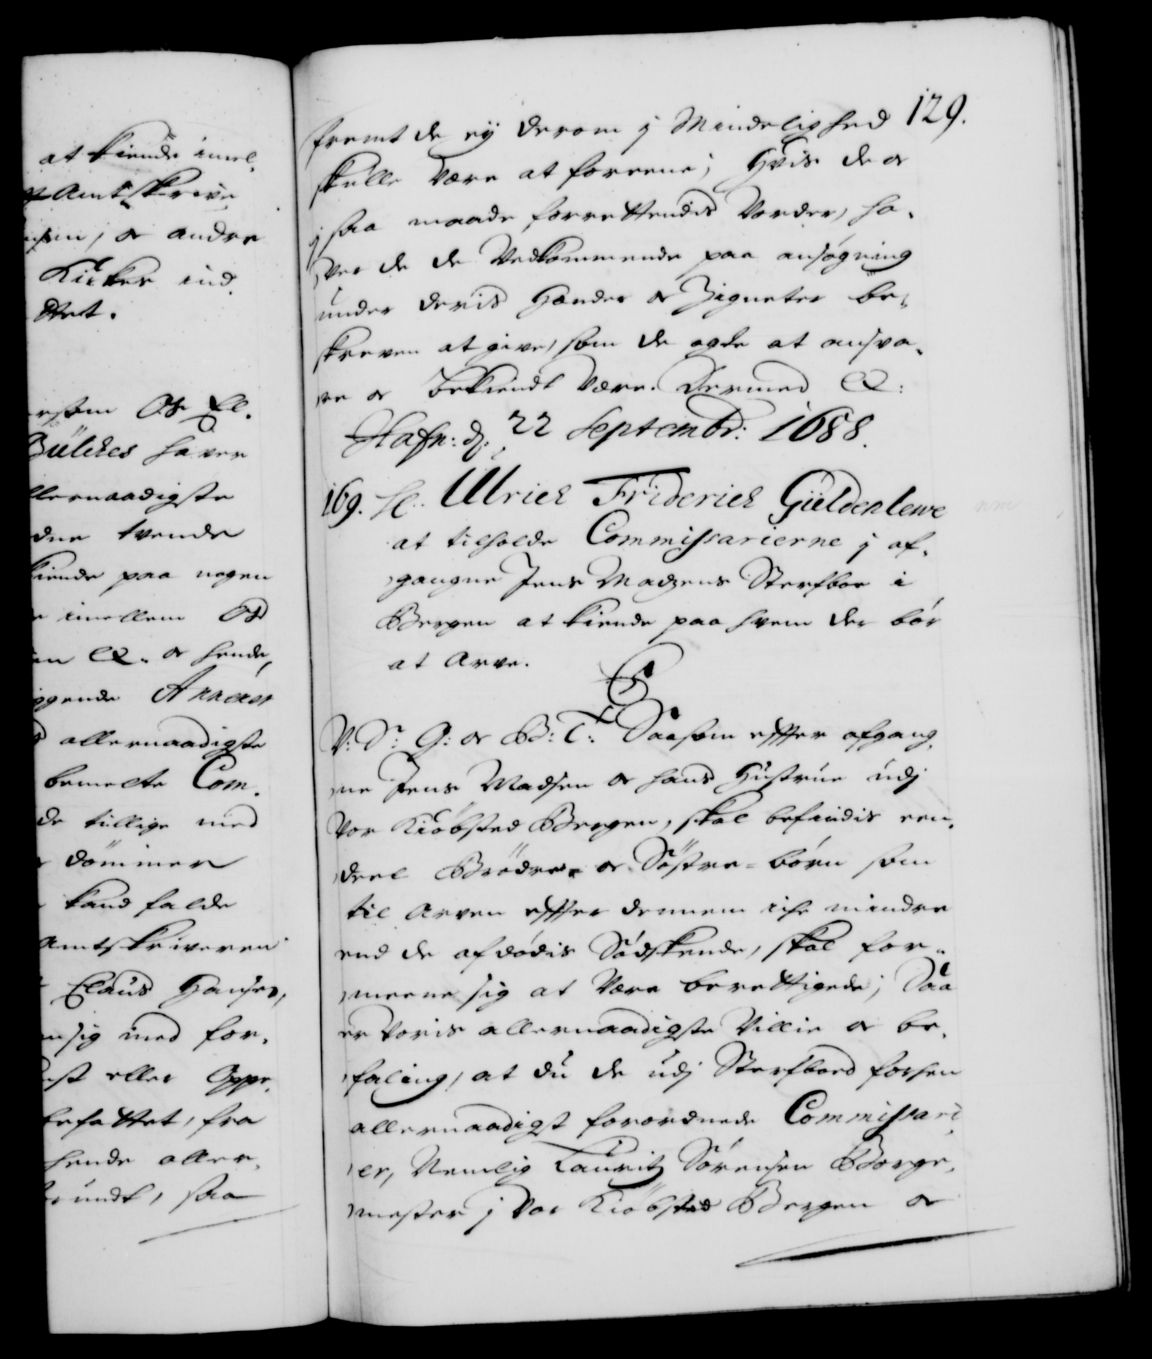 at kiende imel,
Amtskrive
, og andre
Kirker ind,
ttet.
ersom Os El.
Bülches haver
llernaadigste
dne tvende
kiende paa nogen
imellem Os
en &. og hende,
ggende
allernaadigste
bemelte Com,
de tillige med
dømmer
kand falde
Amtskriveren
Claus Hansøn,
sig med for,
eller
befattet, fra
hende aller,
undt, saa
129.
fremt de ej derom i Mindelighed
skulle være at foreene; Hvis de og
i saa maade forrettendis Vorder, ha,
ver de de Vedkommende paa ansøgning
under deris Hænder og Zigneter be,
skreven at give, som de agte at ansva,
re og bekiendt være. Dermed &:
Hafn: d: 22 Septembr: 1688.
169. H: Ulrich Friderich Güldenlewe
at tilholde Commissarierne i af,
gangne Jens Madzens Sterfboe i
Bergen at kiende paa hvem der bør
at Arve.
C5
V: S: G: og B: T: Saasom effter afgang,
ne Jens Madsen og hans Hustrue udj
Vor Kiøbsted Bergen, skal befindis een,
deel Brødre og Søstre-børn som
til Arven effter dennem icke mindre
end de afdødis Sødskende, skal for,
meene sig at være berettigede; Saa
er Voris allernaadigste Villie og be,
faling, at du de udj Sterfboed forhen
allernaadigst forordnede Commissari,
er, Nemlig Lauritz Sørensen Borge,
mester i Vor Kiøbsted Bergen og